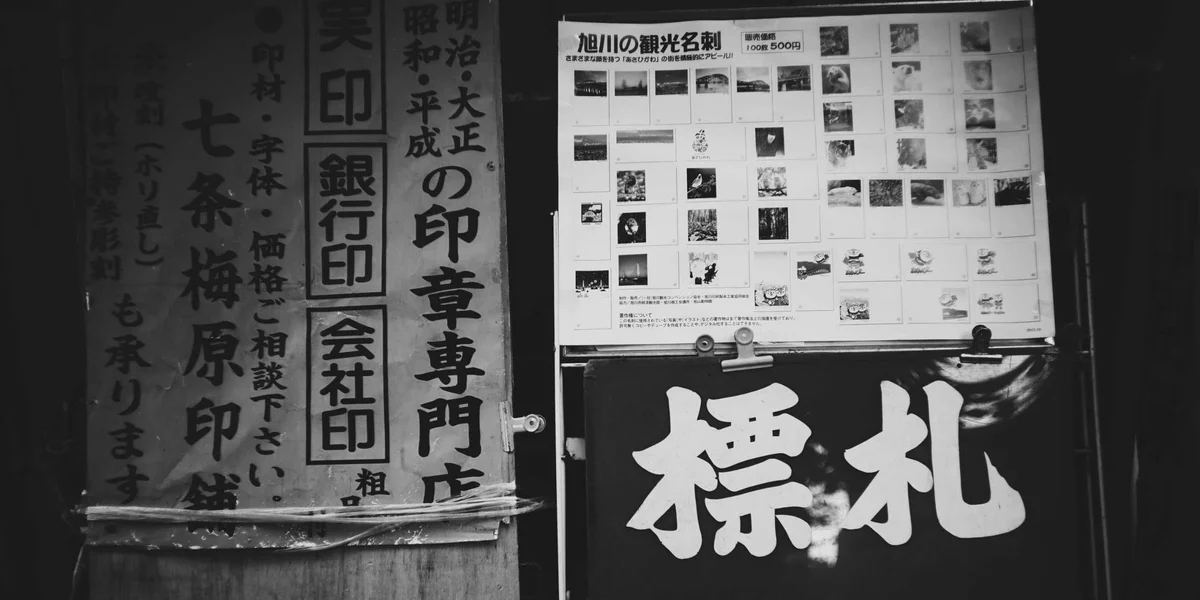 明治・大正
昭和・平成
の印章専門店
実印
銀行印
会社印
粗
●印材・字体・価格ご相談下さい。
七条梅原印舗
(ホリ直し)
も承ります
旭川の観光名刺
さまざまな顔を持つ「あさひかわ」の街を積極的にアピール!!
販売価格
100枚 500円
著作権について
標札